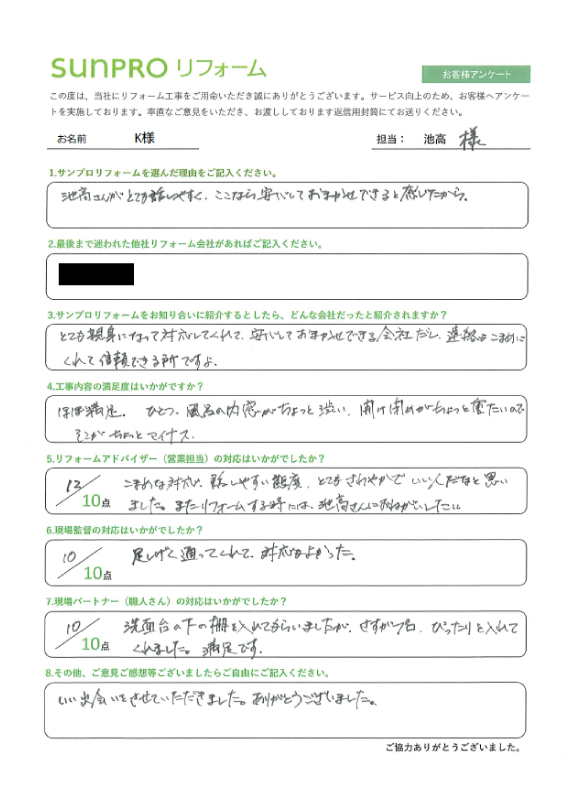 sunpro リフォーム
お客様アンケート
この度は、当社にリフォーム工事をご用命いただき誠にありがとうございます。サービス向上のため、お客様へアンケー
トを実施しております。率直なご意見をいただき、お渡ししております返信用封筒にてお送りください。
お名前 K様 担当： 池高 様
1.サンプロリフォームを選んだ理由をご記入ください。
池高さんがとても話しやすく、ここなら安心しておまかせできると感じたから。
2.最後まで迷われた他社リフォーム会社があればご記入ください。
3.サンプロリフォームをお知り合いに紹介するとしたら、どんな会社だったと紹介されますか？
とても親身になって対応してくれて、安心しておまかせできる会社だし、連絡もこまめに
くれて信頼できる所ですよ。
4.工事内容の満足度はいかがですか？
ほぼ満足。ひとつ、風呂の内窓がちょっと渋い、開け閉めがちょっと重たいので
そこがちょっとマイナス。
5.リフォームアドバイザー（営業担当）の対応はいかがでしたか？
12/10点 こまめな対応、話しやすい態度、とてもさわやかでいい人だなと思い
ました。またリフォームする時には、池高さんにおねがいしたい
6.現場監督の対応はいかがでしたか？
10/10点 足しげく通ってくれて、対応もよかった。
7.現場パートナー（職人さん）の対応はいかがでしたか？
10/10点 洗面台の下の棚を入れてもらいましたが、さすがプロ、ぴったりと入れて
くれました。満足です。
8.その他、ご意見ご感想等ございましたらご自由にご記入ください。
いい出会いをさせていただきました。ありがとうございました。
ご協力ありがとうございました。